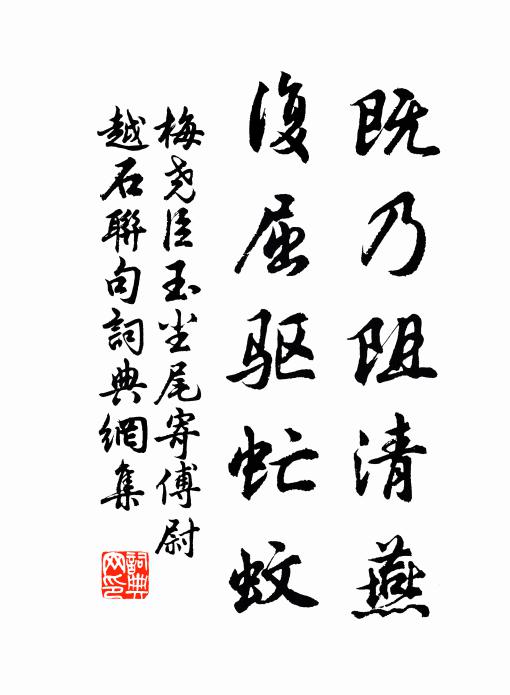 既乃阻清燕
復屈驱虻蚊
梅尧臣玉尘尾寄傅尉
越石聯句詞典網集
詞典
网印